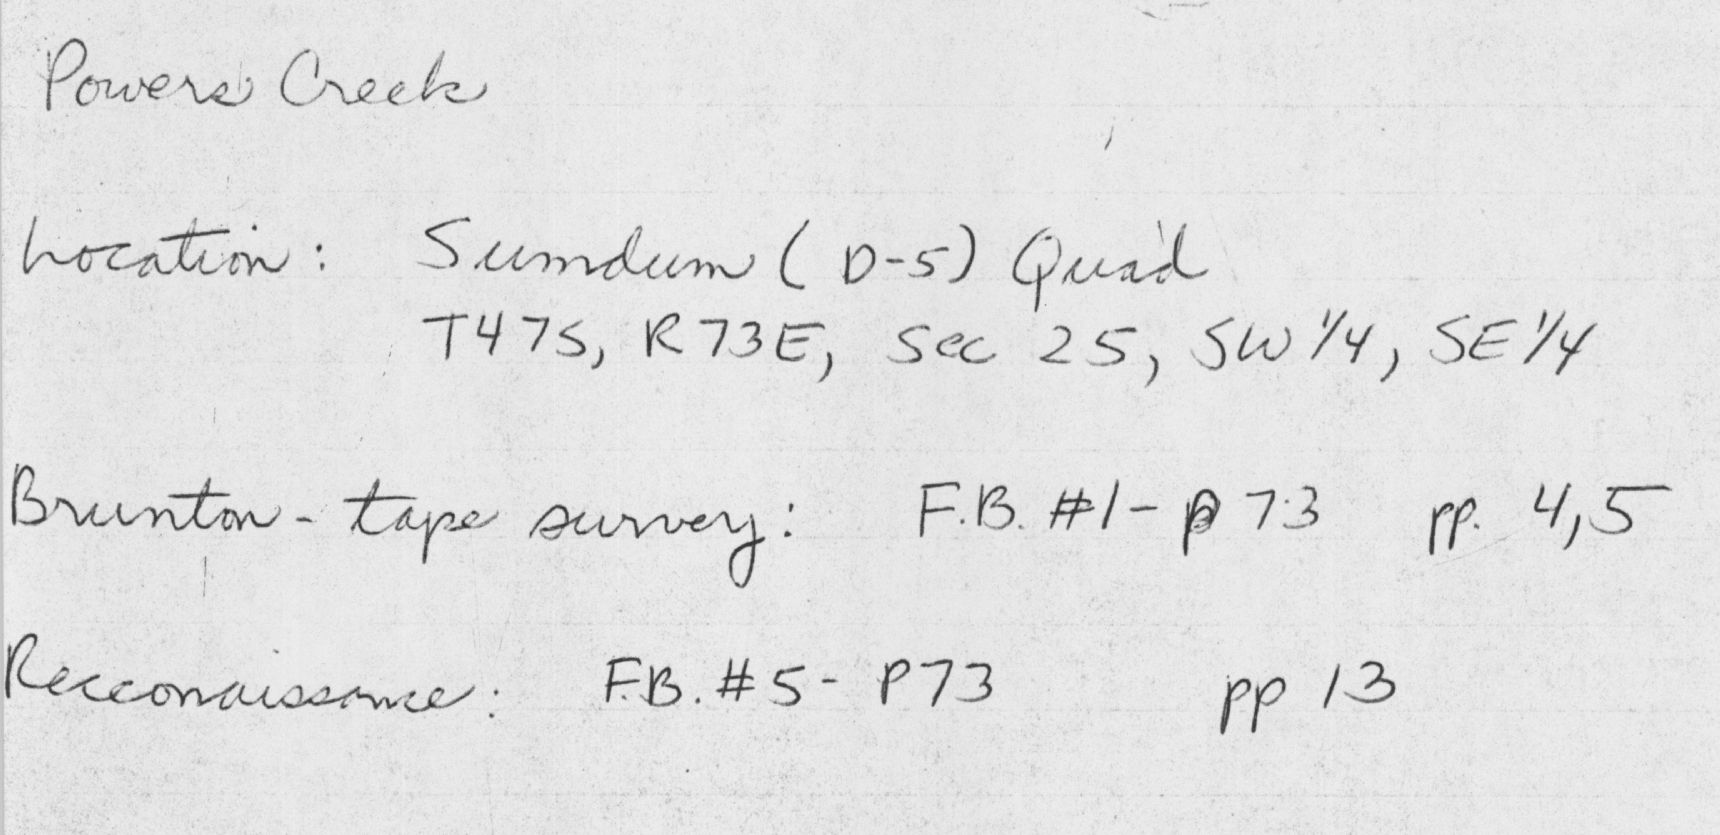 Powers Creek
Location: Sumdum (D-5) Quad
T47S, R73E, Sec 25, SW 1/4, SE 1/4
Brunton-tape survey: F.B. #1-p73 pp. 4,5
Recconaissance: F.B. #5-P73 pp 13